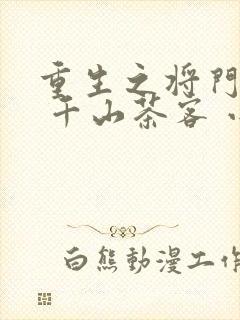 重生之将門
千山茶客
白熊動漫工作